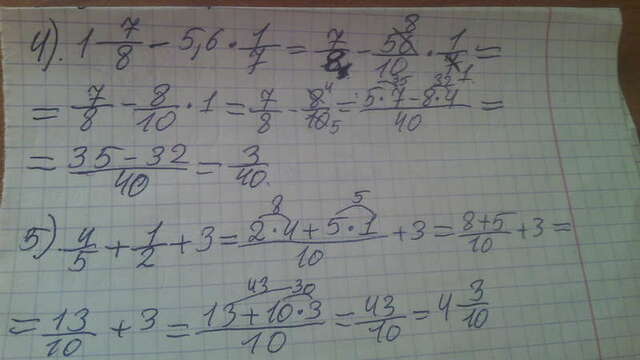 4). 1 - 7/8 - 5,6 · 1/7 = 7/8 - 56/10 · 1/7 =
= 7/8 - 8/10 · 1 = 7/8 - 8/10 = (5·7 - 8·4)/40 =
= (35 - 32)/40 = 3/40.
5) 4/5 + 1/2 + 3 = (2·4 + 5·1)/10 + 3 = (8+5)/10 + 3 =
= 13/10 + 3 = (13 + 10·3)/10 = 43/10 = 4 3/10